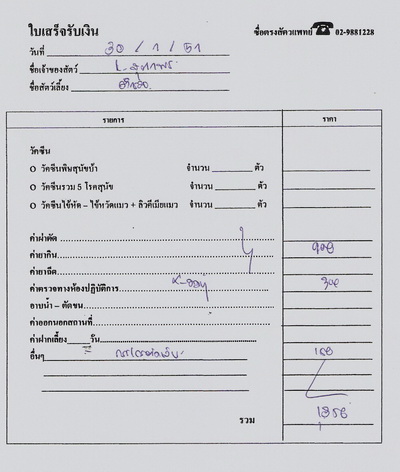 ใบเสร็จรับเงิน
ซื่อตรงสัตวแพทย์ ☎ 02-9881228
วันที่ 30 / 1 / 51
ชื่อเจ้าของสัตว์
ชื่อสัตว์เลี้ยง
รายการ ราคา
วัคซีน
o วัคซีนพิษสุนัขบ้า จำนวน ตัว
o วัคซีนรวม 5 โรคสุนัข จำนวน ตัว
o วัคซีนไข้หัด – ไข้หวัดแมว + ลิวคีเมียแมว จำนวน ตัว
ค่าผ่าตัด
ค่ายากิน 900
ค่ายาฉีด
ค่าตรวจทางห้องปฏิบัติการ 300
อาบน้ำ – ตัดขน
ค่าออกนอกสถานที่
ค่าฝากเลี้ยง วัน
อื่นๆ 150
รวม 1350